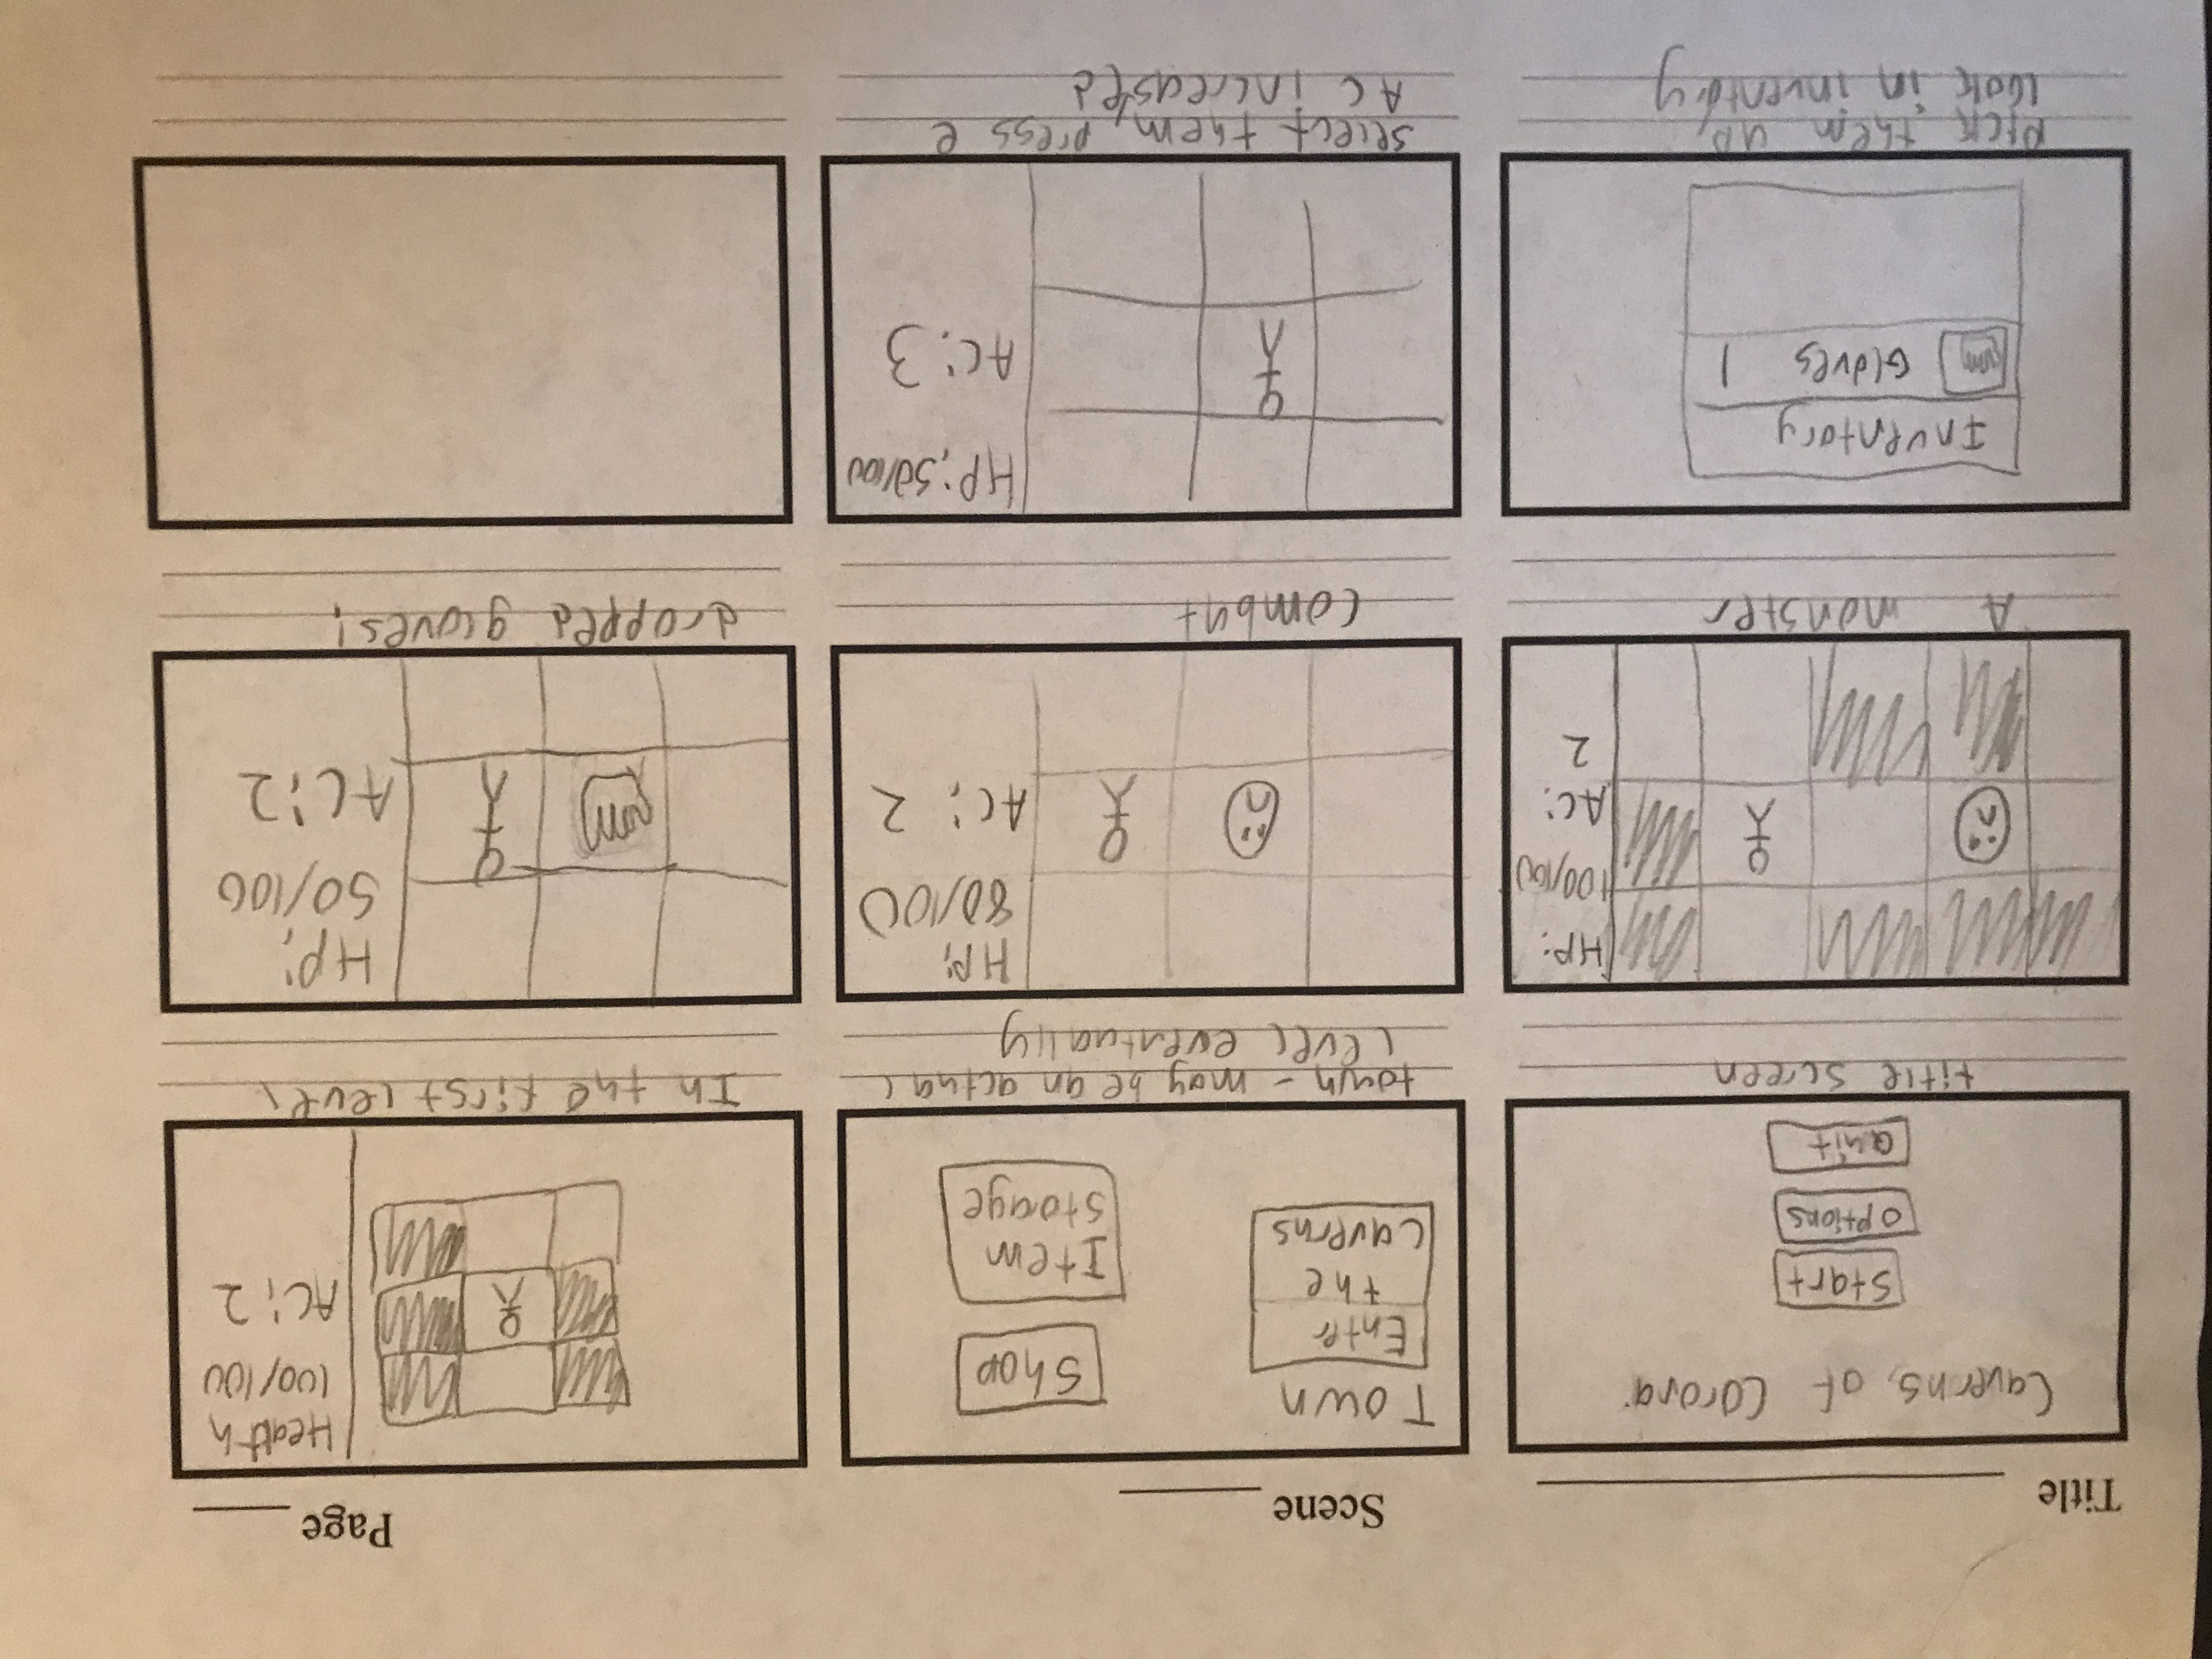 Title
Scene
Page
Caverns, of Corona
Start
options
Quit
title screen
Town
Enter
the
Caverns
Shop
Item
Storage
town - may be an actual
level eventually
Health
100/100
AC: 2
In the first level
HP:
100/100
AC:
2
A monster
HP:
80/100
AC: 2
Combat
HP:
50/100
AC: 2
dropped gloves!
Inventory
Gloves 1
Pick them up,
look in inventory
HP: 50/100
AC: 3
Select them, press e
AC increased